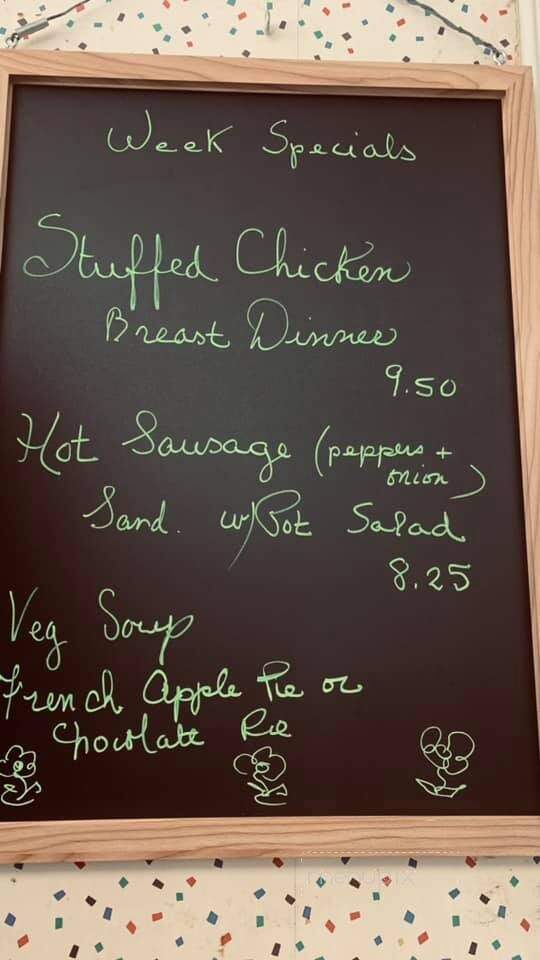 Week Specials
Stuffed Chicken
Breast Dinner
9.50
Hot Sausage (peppers +
onion)
Sand. w/Pot Salad
8.25
Veg Soup
French Apple Pie or
Chocolate Pie